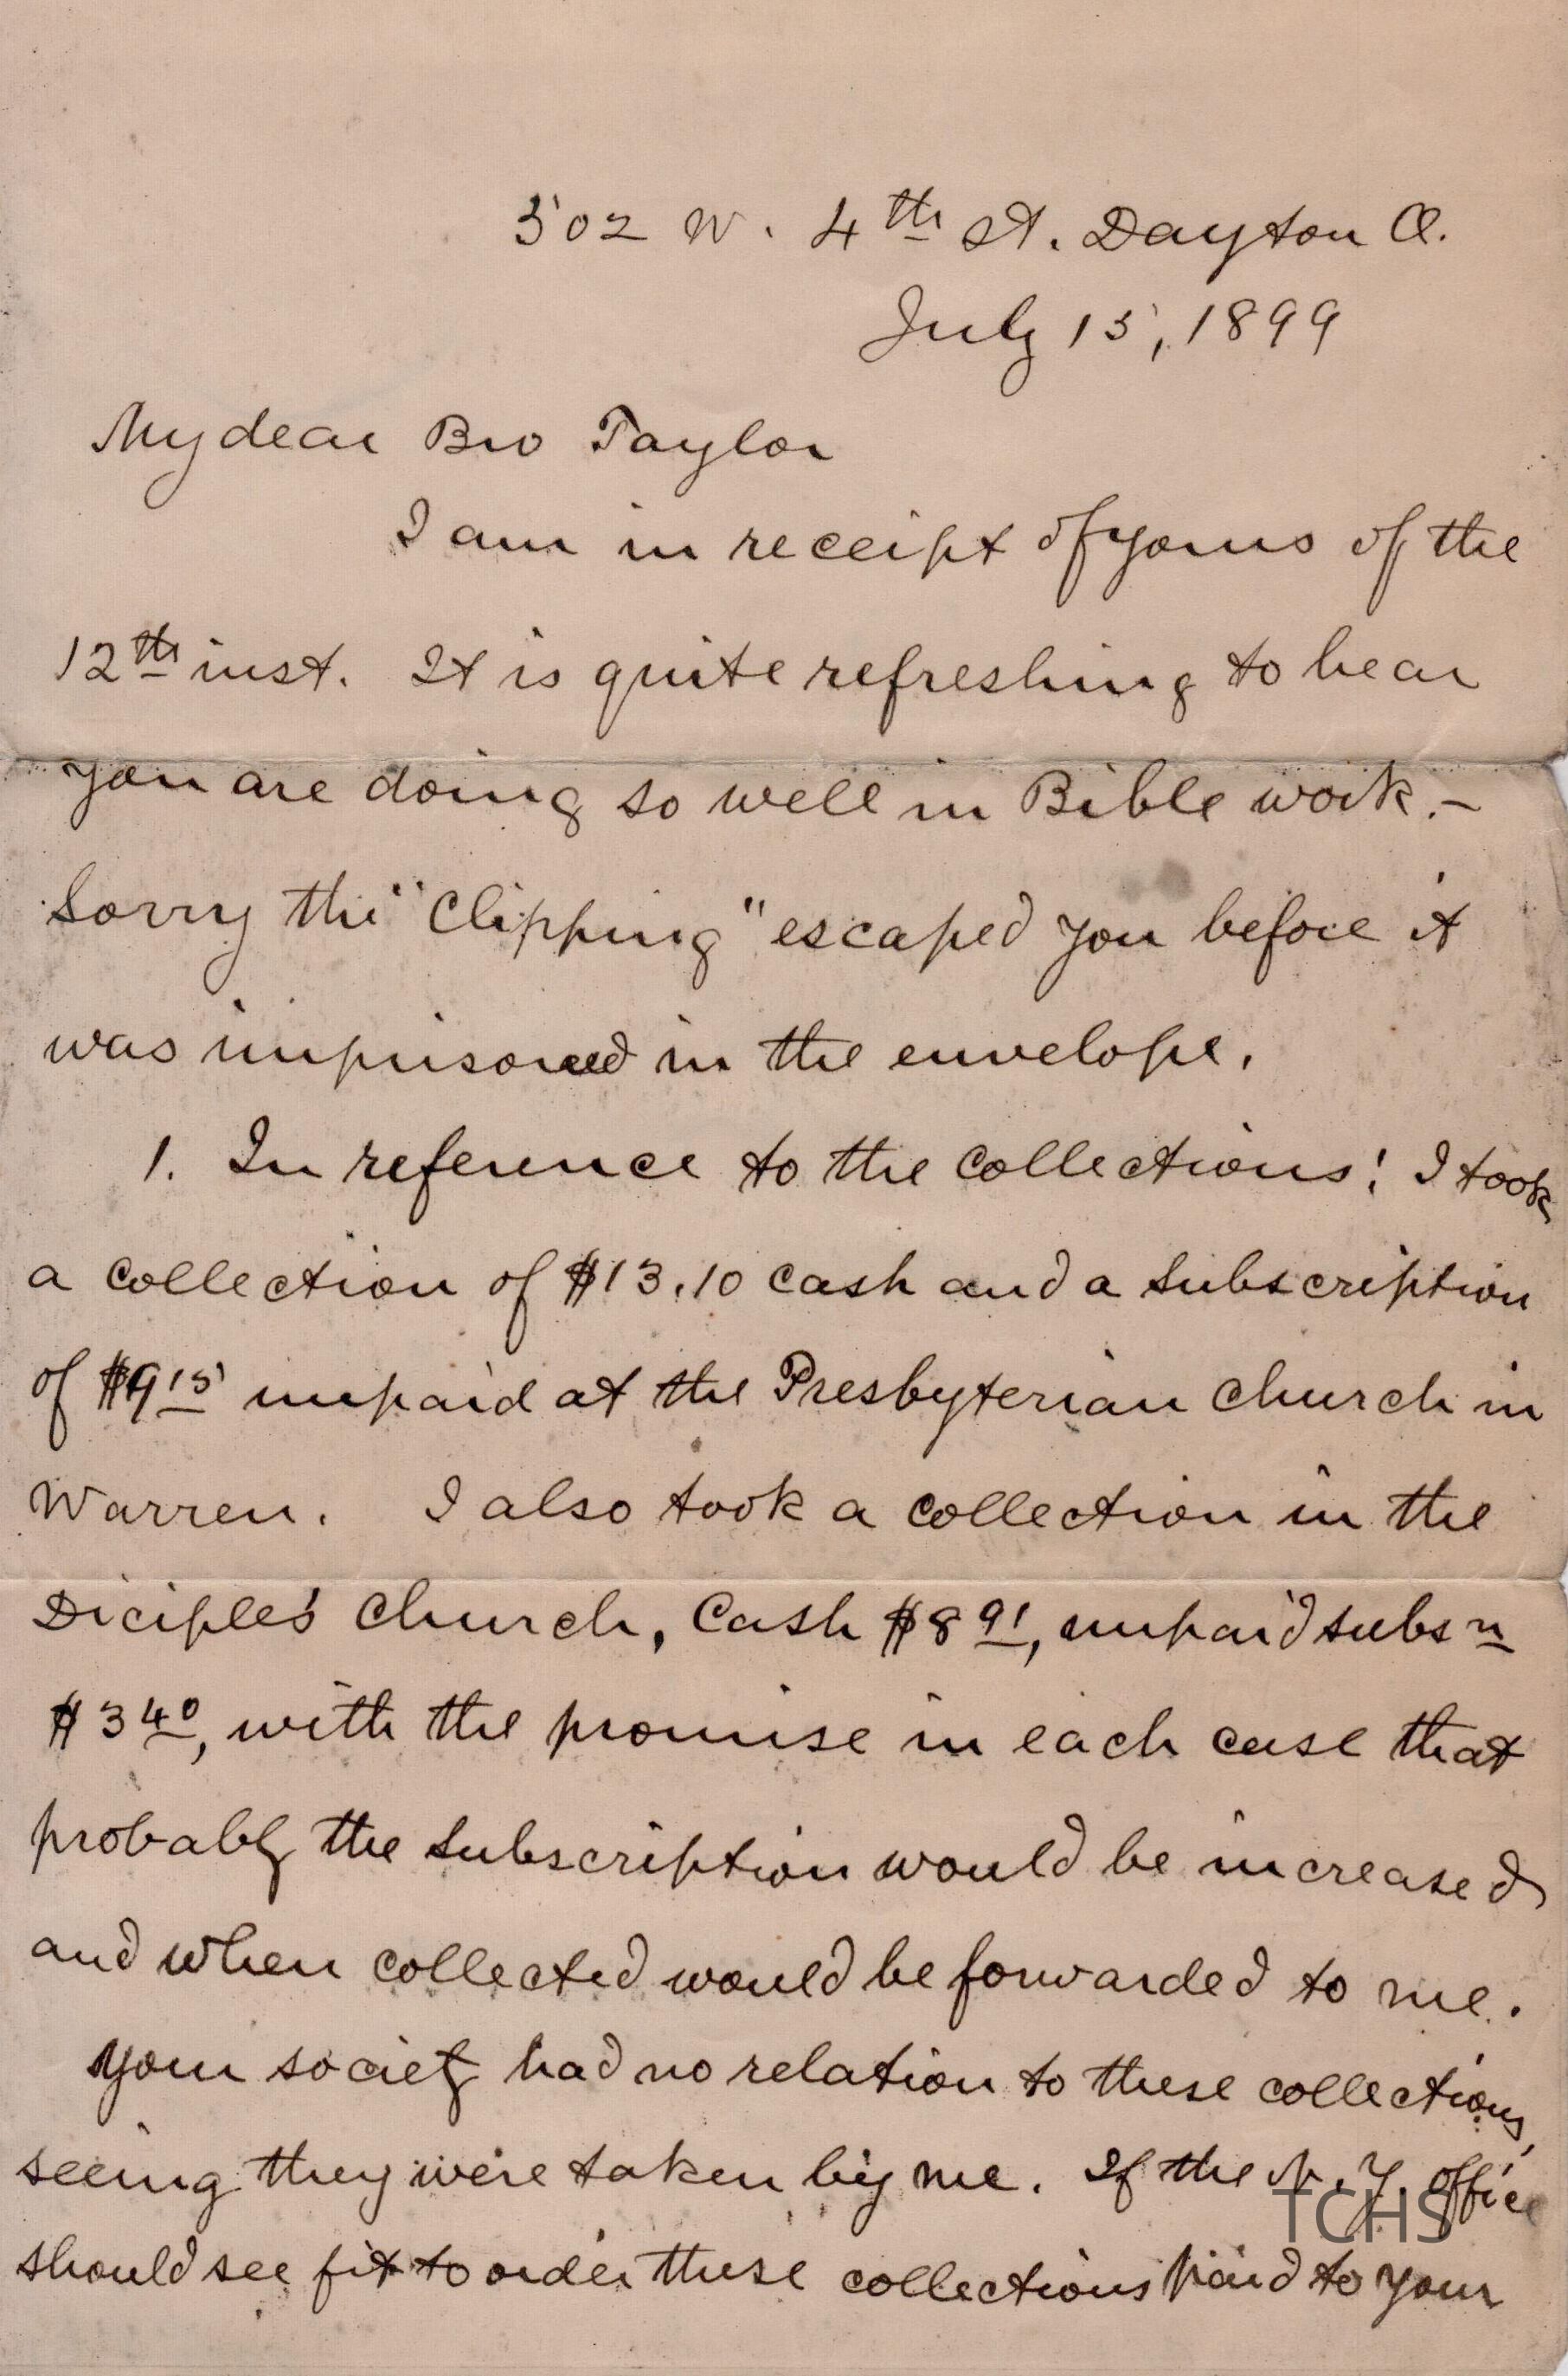 502 W. 4th St. Dayton O.
July 15, 1899
My dear Bro Taylor
I am in receipt of yours of the
12th inst. It is quite refreshing to hear
you are doing so well in Bible work. -
Sorry the "Clipping" escaped you before it
was imprisoned in the envelope.
1. In reference to the collections: I took
a collection of $13.10 cash and a subscription
of $9 15 unpaid at the Presbyterian church in
Warren. I also took a collection in the
Diciple's church, Cash $8 91, unpaid subs n
$3 40, with the promise in each case that
probably the subscription would be increased
and when collected would be forwarded to me.
Your society had no relation to these collections,
seeing they were taken by me. If the N. Y. office
TCHS
should see fit to order these collections paid to your